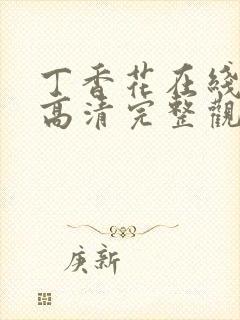 丁香花在线
高清完整觀
庚新